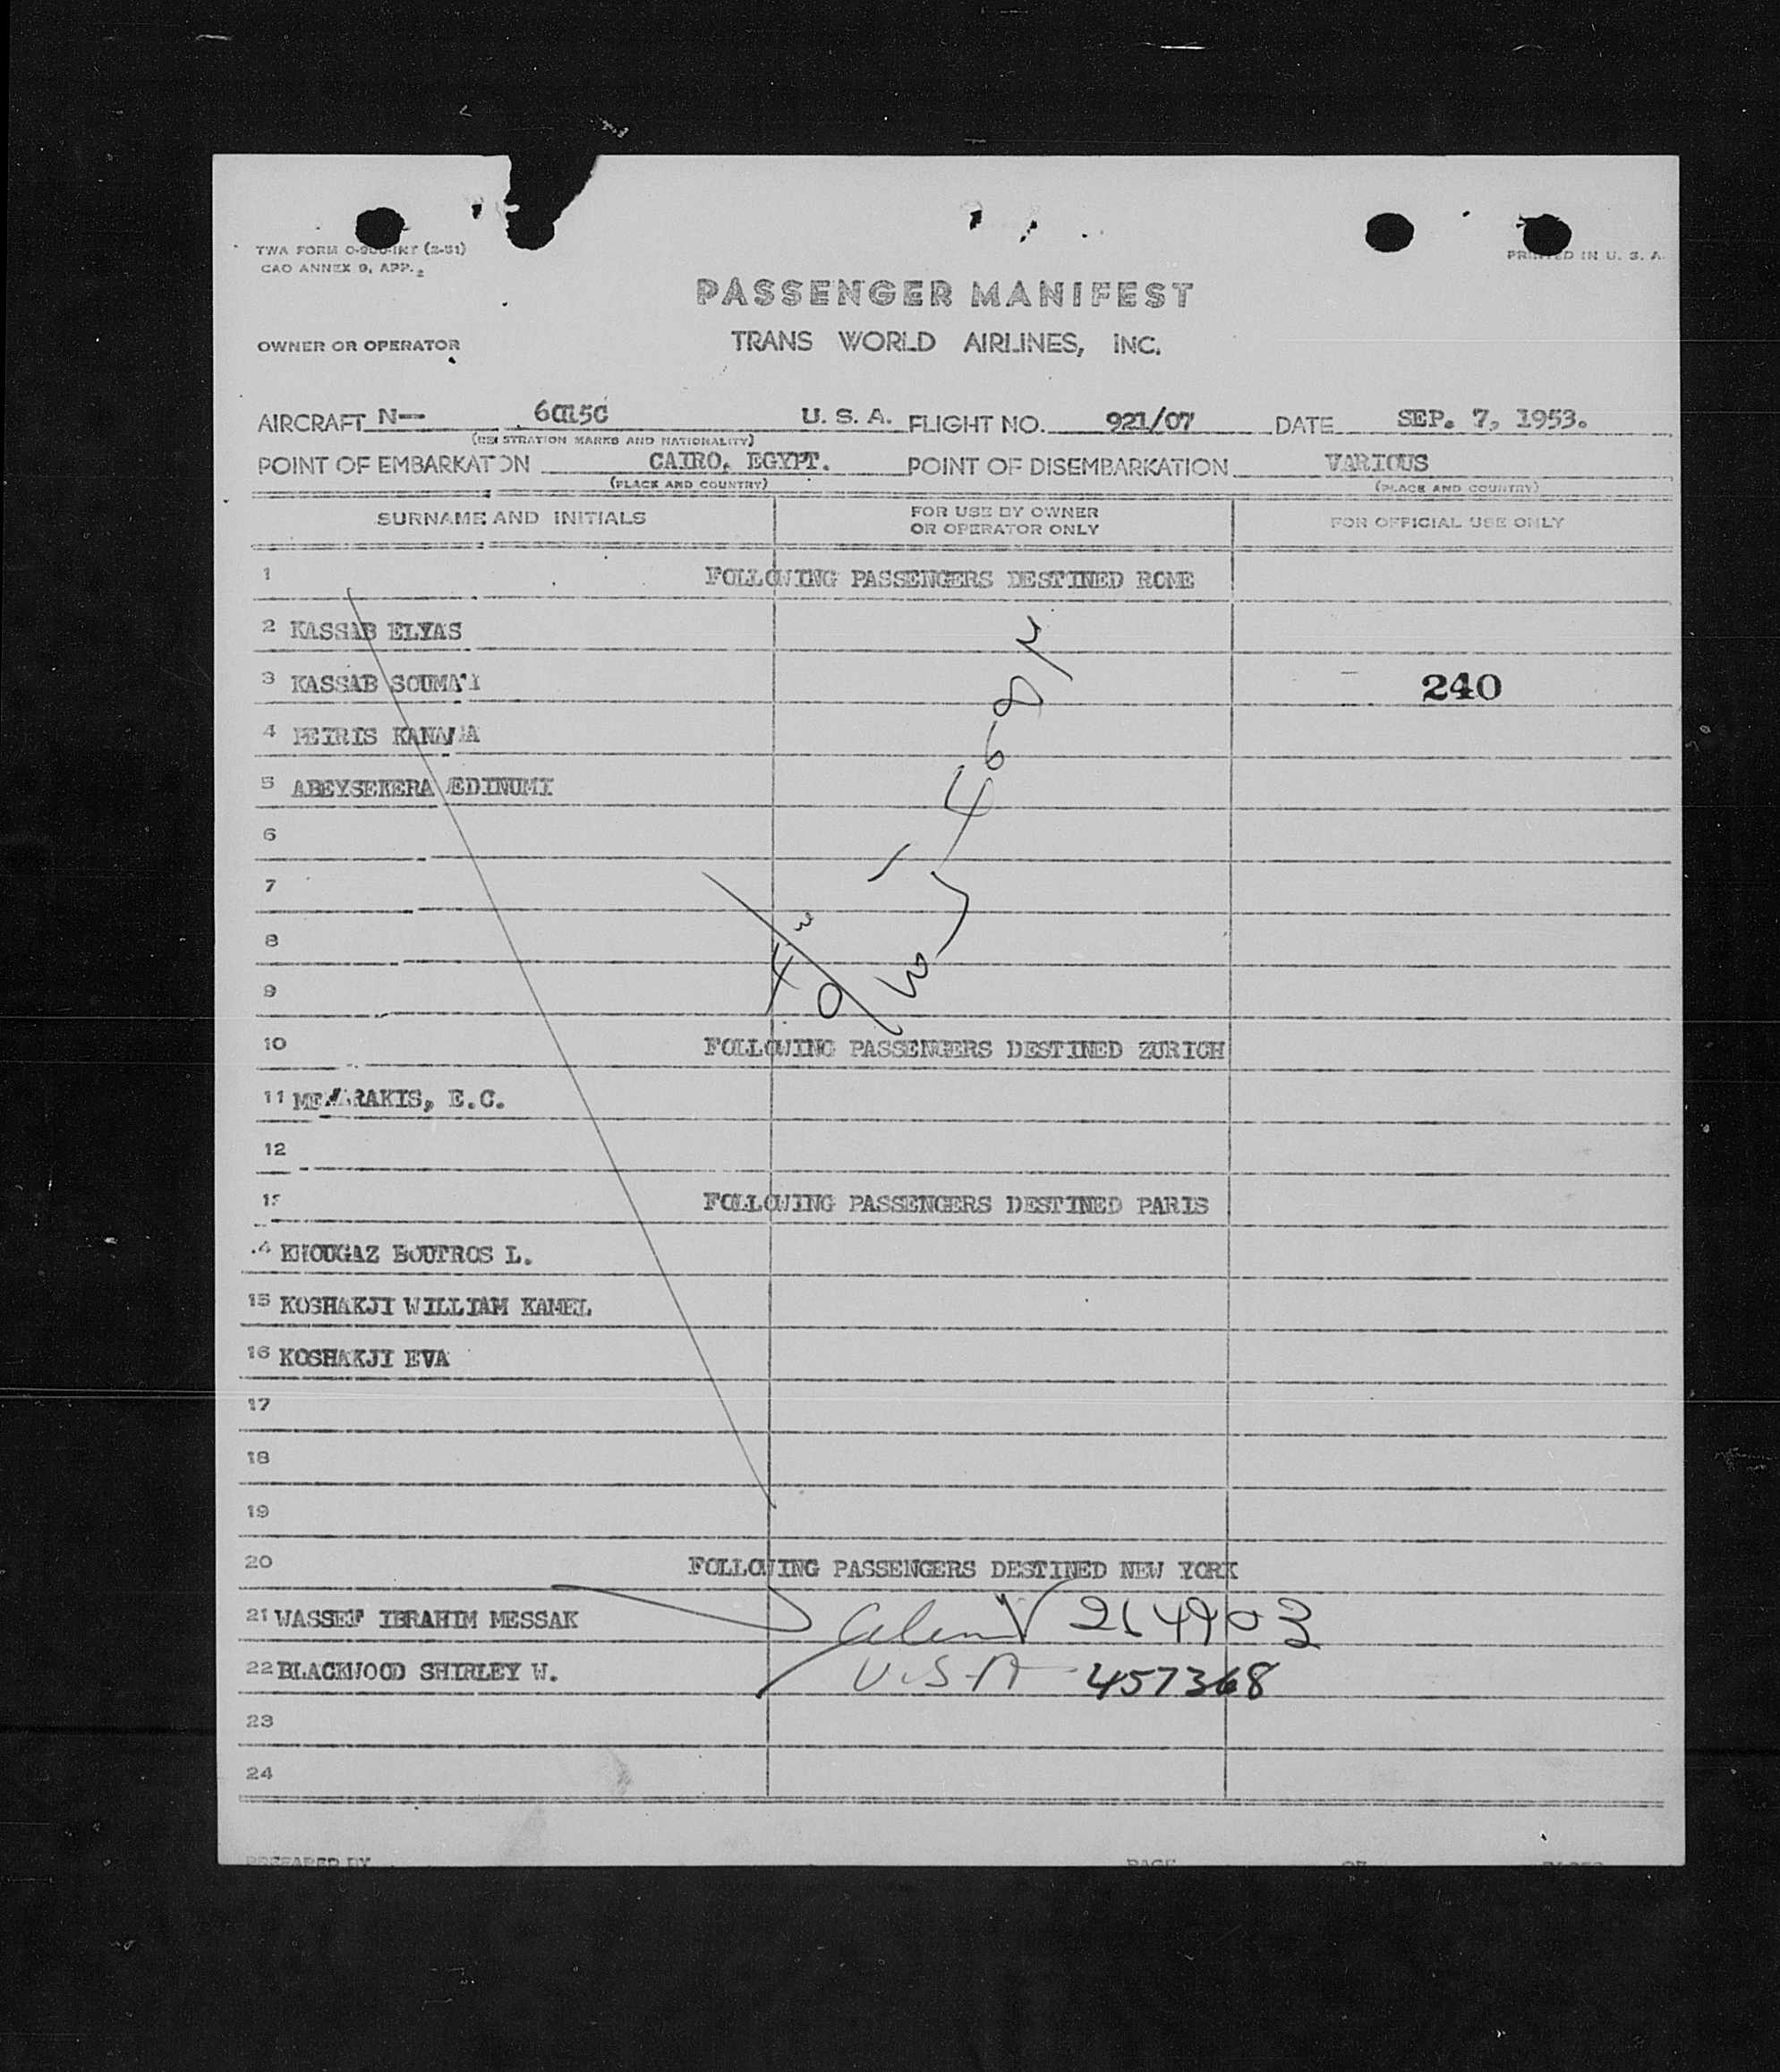 TWA FORM (2-51)
PRINTED IN U. S. A.
CAO ANNEX 9, APP. 2
PASSENGER MANIFEST
OWNER OR OPERATOR TRANS WORLD AIRLINES, INC.
AIRCRAFT N-- 6015C U. S. A. FLIGHT NO. 921/07 DATE SEP. 7, 1953.
(REGISTRATION MARKS AND NATIONALITY)
POINT OF EMBARKATION CAIRO, EGYPT. POINT OF DISEMBARKATION VARIOUS
(PLACE AND COUNTRY) (PLACE AND COUNTRY)
SURNAME AND INITIALS FOR USE BY OWNER OR OPERATOR ONLY FOR OFFICIAL USE ONLY
1 FOLLOWING PASSENGERS DESTINED ROME
2 KASSAB ELYAS
3 KASSAB 240
4 PEIRIS
5 ABEYSEKERA EDINUMI
6
7
8
9
10 FOLLOWING PASSENGERS DESTINED ZURICH
11 E.C.
12
13 FOLLOWING PASSENGERS DESTINED PARIS
14 KHOUGAZ BOUTROS L.
15 KOSHAKJI WILLIAM KAMEL
16 KOSHAKJI EVA
17
18
19
20 FOLLOWING PASSENGERS DESTINED NEW YORK
21 WASSEF IBRAHIM MESSAK
22 BLACKWOOD SHIRLEY W. U.S.A 457368
23
24
PREPARED BY PAGE OF PAGES